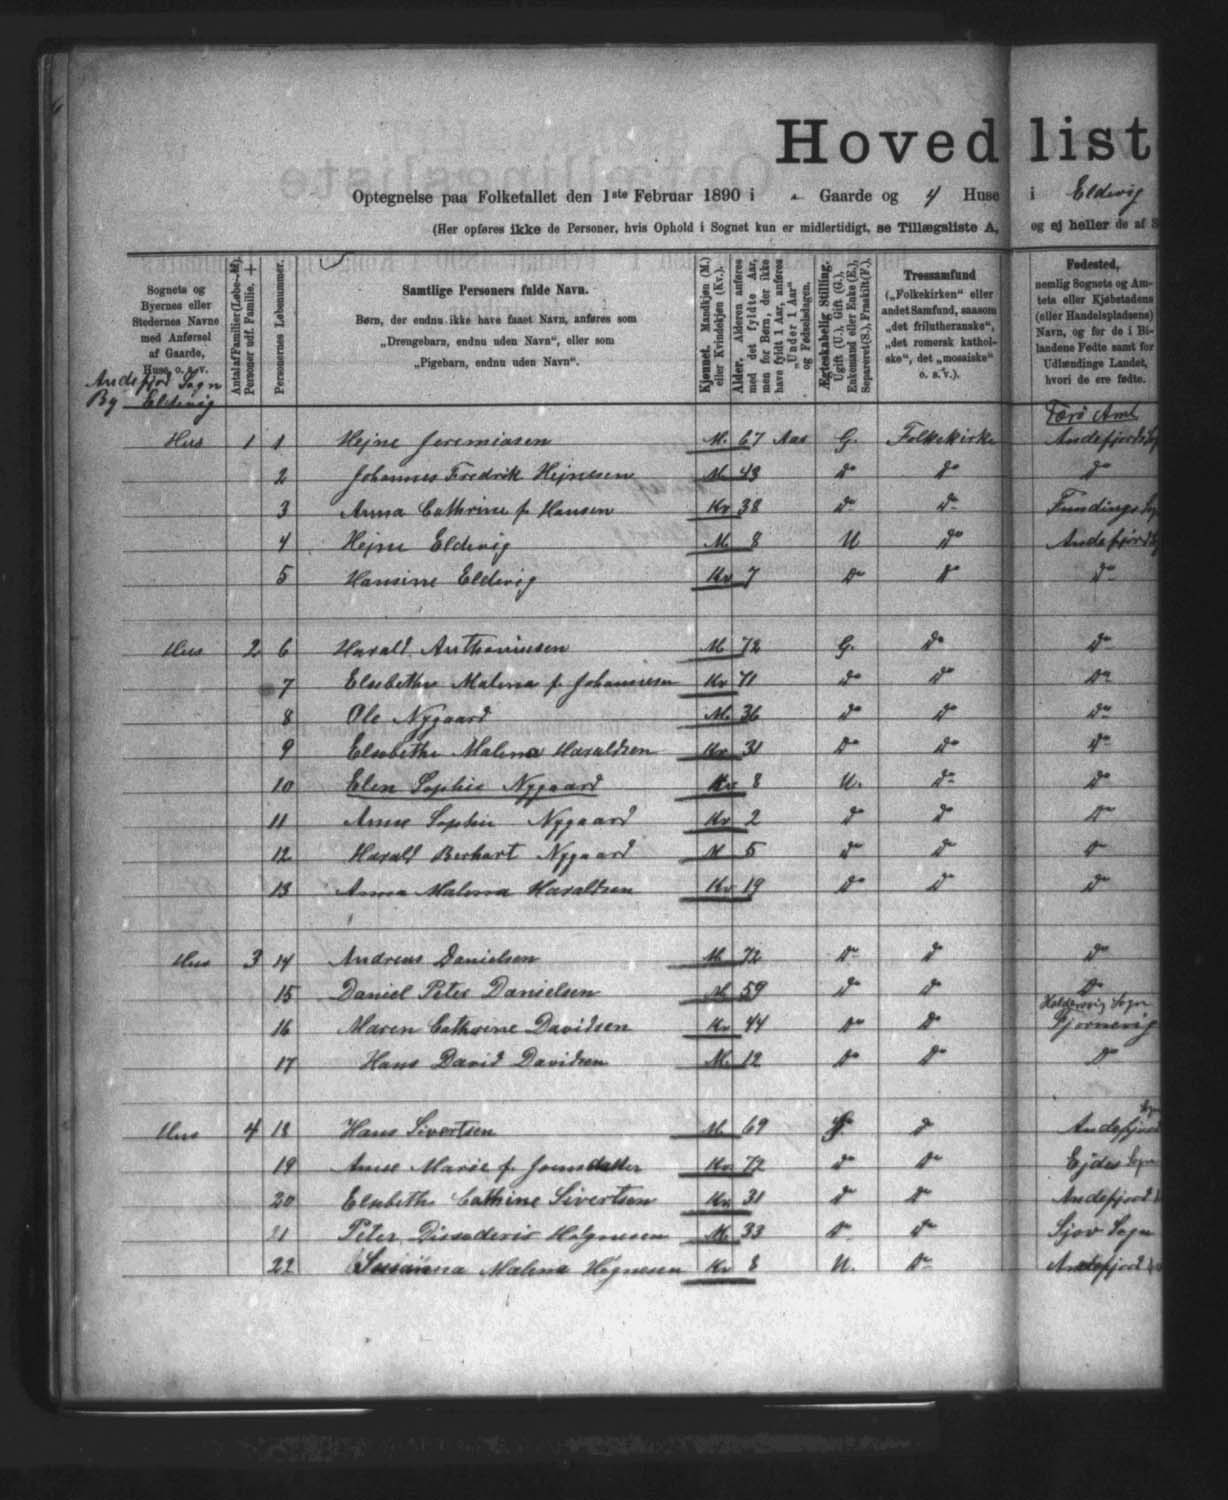 Hovedlist
Optegnelse paa Folketallet den 1ste Februar 1890 i - Gaarde og 4 Huse i Eldevig
(Her opføres ikke de Personer, hvis Ophold i Sognet kun er midlertidigt, se Tillægsliste A, og ej heller de af S
Sognets og Byernes eller Stedernes Navne med Anførsel af Gaarde, Huse o. s. v.
Antal af Familier (Løbe-№). Personer udf. Familie, +
Personernes Løbenummer.
Samtlige Personers fulde Navn.
Børn, der endnu ikke have faaet Navn, anføres som „Drengebarn, endnu uden Navn“, eller som „Pigebarn, endnu uden Navn“.
Kjønnet. Mandkjøn (M.) eller Kvindekjøn (Kv.).
Alder. Alderen anføres med det fyldte Aar, men for Børn, der ikke have fyldt 1 Aar, anføres „Under 1 Aar“ og Fødselsdagen.
Ægteskabelig Stilling. Ugift (U.), Gift (G.), Enkemand eller Enke (E.), Separeret (S.), Fraskilt (F.).
Trossamfund („Folkekirken“ eller andet Samfund, saasom „det frilutheranske“, „det romersk katholske“, det „mosaiske“ o. s. v.).
Fødested, nemlig Sognets og Amtets eller Kjøbstadens (eller Handelspladsens) Navn, og for de i Bilandene Fødte samt for Udlændinge Landet, hvori de ere fødte.
Andefjord Sogn
By Eldevig
Færø Amt
Hus 1 1 Hejne Jeremiasen M. 67 Aar G. Folkekirke Andefjords Sog
2 Johannes Fredrik Hejnesen M 43 do do do
3 Anna Cathrine f. Hansen Kv 38 do do Fundings Sog
4 Hejne Eldevig M. 8 U do Andefjord
5 Hansine Eldevig Kv 7 do do do
Hus 2 6 Harald Anthoniusen M 72 G. do do
7 Elsbethe Malena f. Johannesen Kv 71 do do do
8 Ole Nygaard M. 36 do do do
9 Elsebethe Malena Haraldsen Kv 31 do do do
10 Elen Sophie Nygaard Kv 8 U. do do
11 Anne Sophie Nygaard Kv 2 do do do
12 Harald Berhart Nygaard M 5 do do do
13 Anna Malena Haraldsen Kv 19 do do do
Hus 3 14 Andreas Danielsen M 72 do do do
15 Daniel Peter Danielsen M 59 do do do
16 Maren Cathrine Davidsen Kv 44 do do Haldersvig Sogn Gjørnevig
17 Hans David Davidsen M. 12 do do do
Hus 4 18 Hans Sivertsen M. 69 G. do Andefjord Sogn
19 Anne Marie f. Joensdatter Kv 72 do do Ejdes Sogn
20 Elsbethe Cathine Sivertsen Kv 31 do do Andefjord
21 Peter Hognesen M. 33 do do Sjov Sogn
22 Susanna Malena Høgnesen Kv 8 U. do Andefjord